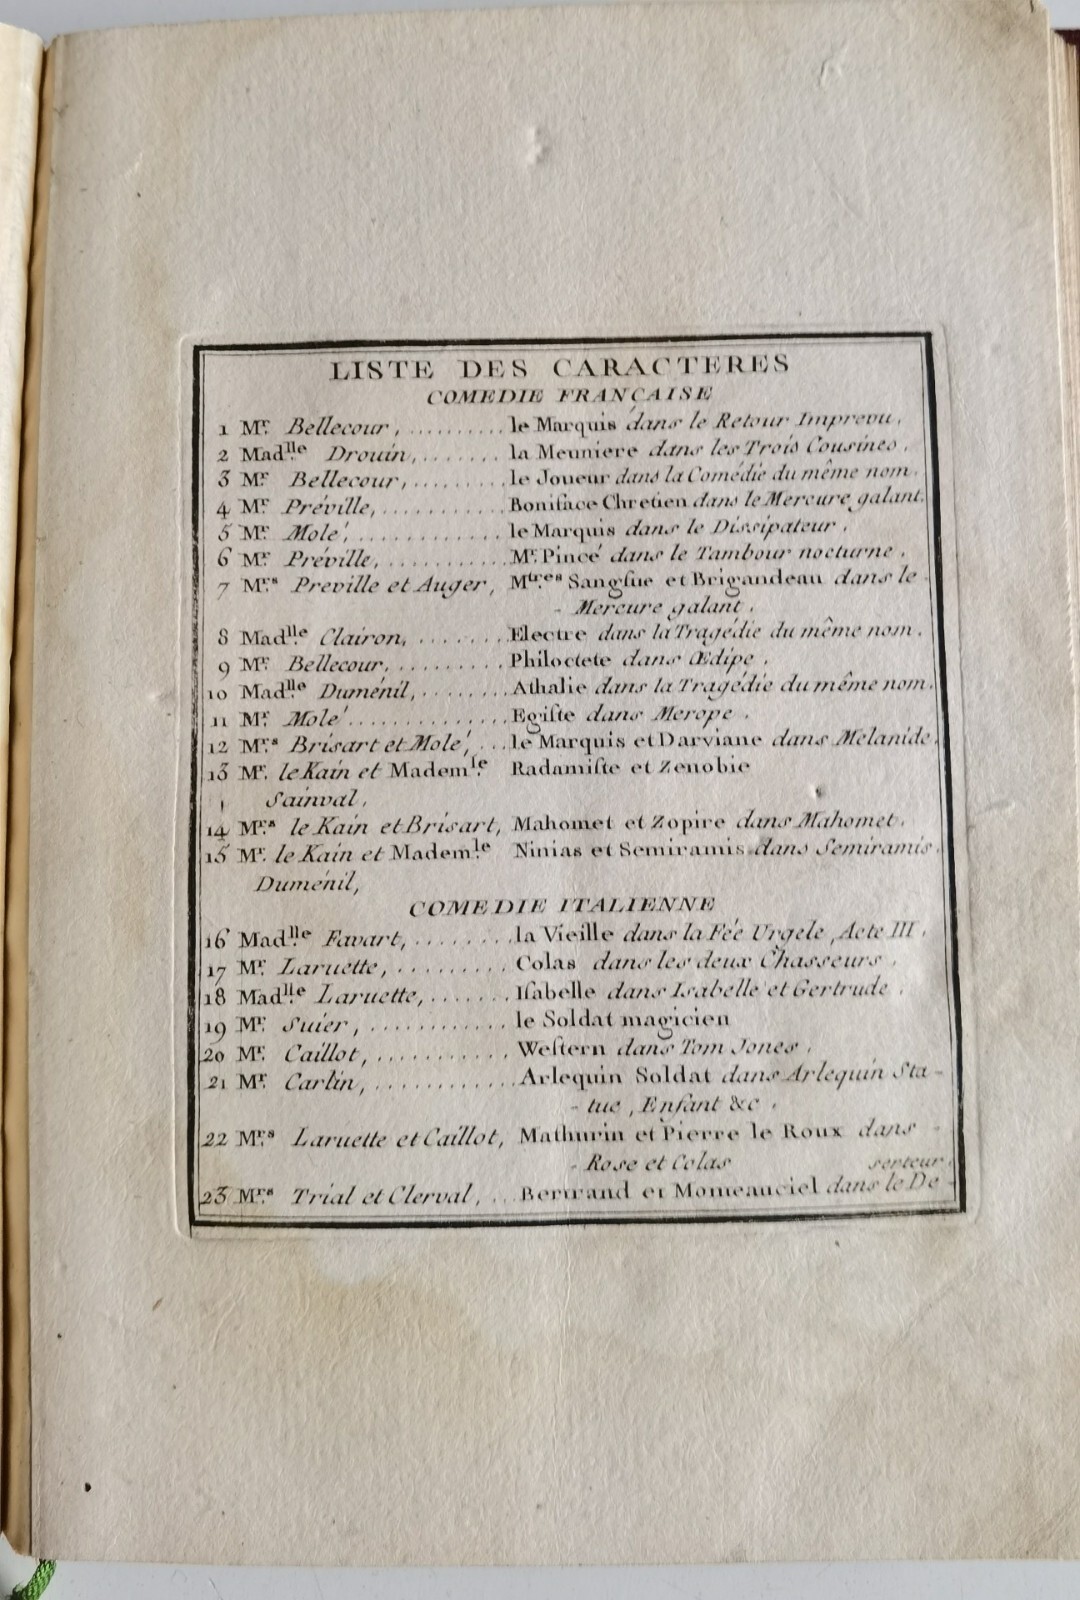 LISTE DES CARACTERES
COMEDIE FRANÇAISE
1 Mr. Bellecour, .......... le Marquis dans le Retour Imprevu.
2 Madlle Drouin, ....... la Meuniere dans les Trois Cousines.
3 Mr Bellecour, ......... le Joueur dans la Comédie du même nom.
4 Mr. Préville, ........... Boniface Chretien dans le Mercure galant.
5 Mr. Molé, ............. le Marquis dans le Dissipateur.
6 Mr. Préville, ........... Mr. Pincé dans le Tambour nocturne.
7 Mrs Preville et Auger, Mtres Sangſue et Brigandeau dans le -
- Mercure galant.
8 Madlle Clairon, ........ Electre dans la Tragédie du même nom.
9 Mr. Bellecour, .......... Philoctete dans Œdipe.
10 Madlle Duménil, ........ Athalie dans la Tragédie du même nom.
11 Mr. Molé .............. Egiſte dans Merope.
12 Mrs Brisart et Molé, ... le Marquis et Darviane dans Mélanide.
13 Mr. le Kain et Mademle Radamiſte et Zenobie
Sainval,
14 Mrs le Kain et Brisart, Mahomet et Zopire dans Mahomet.
15 Mr. le Kain et Mademle Ninias et Semiramis dans Semiramis.
Duménil,
COMEDIE ITALIENNE
16 Madlle Favart, ........ la Vieille dans la Fée Urgele, Acte III.
17 Mr. Laruette, ......... Colas dans les deux Chasseurs.
18 Madlle Laruette, ...... Iſabelle dans Isabelle et Gertrude.
19 Mr. Suier, ............ le Soldat magicien
20 Mr. Caillot, ........... Weſtern dans Tom Jones.
21 Mr. Carlin, ............ Arlequin Soldat dans Arlequin Sta-
- tue, Enfant &c.
22 Mrs Laruette et Caillot, Mathurin et Pierre le Roux dans -
- Rose et Colas serteur.
23 Mrs Trial et Clerval, ... Bertrand et Monteauciel dans le De-